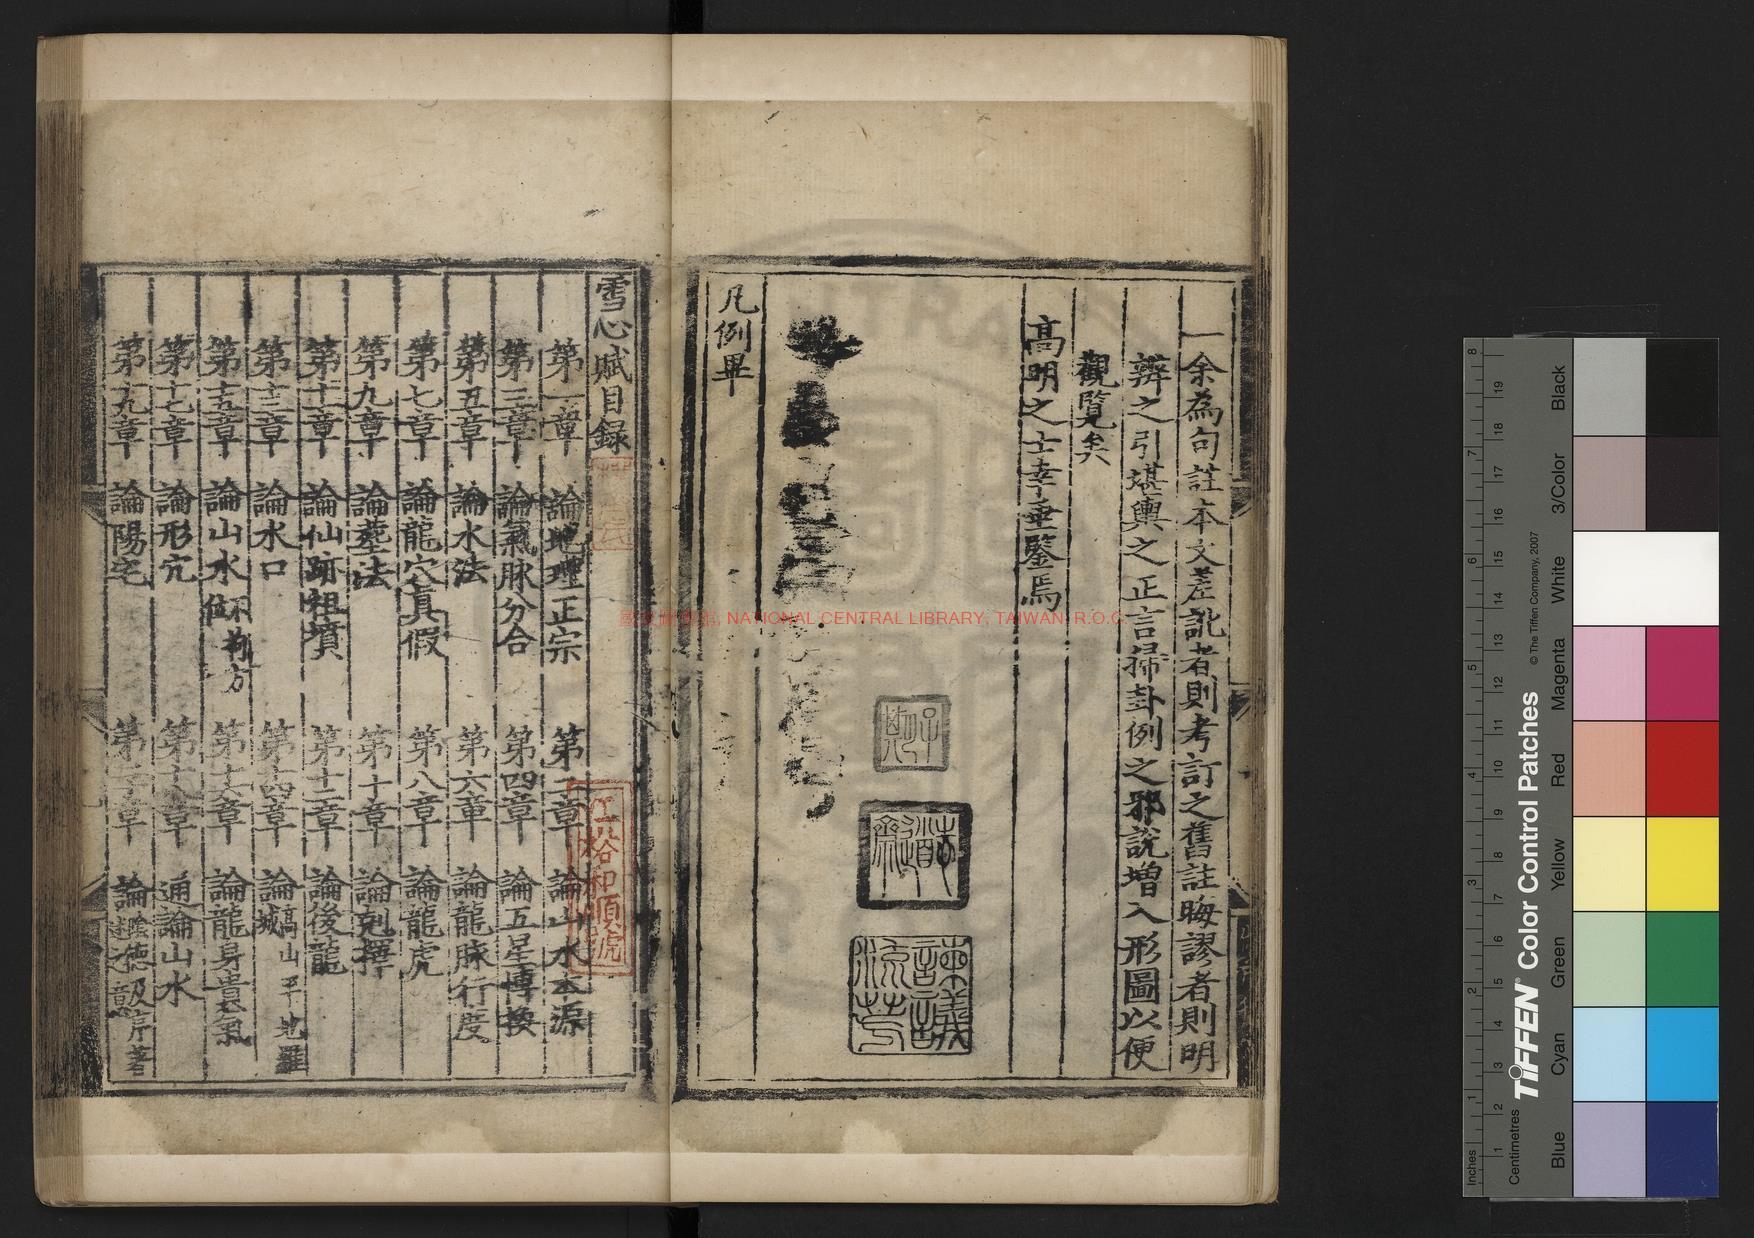 一余為句註本文差訛者則考訂之舊註晦謬者則明
辨之引堪輿之正言掃卦例之邪說增入形圖以便
觀覽矣
高明之士幸垂鑒焉
凡例畢
雪心賦目錄
第一章 論地理正宗 第二章 論山水本源
第三章 論氣脉分合 第四章 論五星傳換
第五章 論水法 第六章 論龍脉行度
第七章 論龍穴真假 第八章 論龍虎
第九章 論塟法 第十章 論剋擇
第十一章 論仙跡祖墳 第十二章 論後龍
第十三章 論水口 第十四章 論高山平地羅城
第十五章 論山水不拘方位
第十六章 論龍身貴氣
第十七章 論形穴 第十八章 通論山水
第十九章 論陽宅 第二十章 論陰德及序著
NATIONAL CENTRAL LIBRARY, TAIWAN, R.O.C.
TIFFEN® Color Control Patches
© The Tiffen Company, 2007
Inches
Centimetres
Blue
Cyan
Green
Yellow
Red
Magenta
White
3/Color
Black